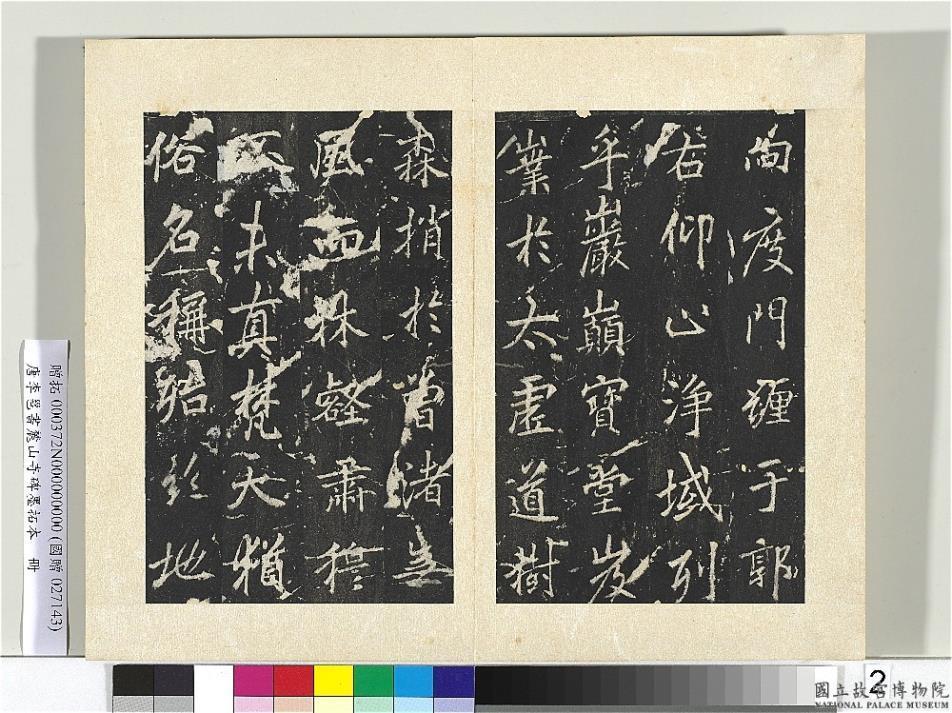 向度門纏于郭
右仰止淨域列
乎巖巔寶堂岌
嶪於太虛道樹
森梢於曾渚無
風而林壑肅穆
未真梵天猶
俗名稱殆絕地
贈拓 000372N000000000 (國贈 027143)
唐李邕書麓山寺碑墨拓本 冊
2
國立故宮博物院
NATIONAL PALACE MUSEUM